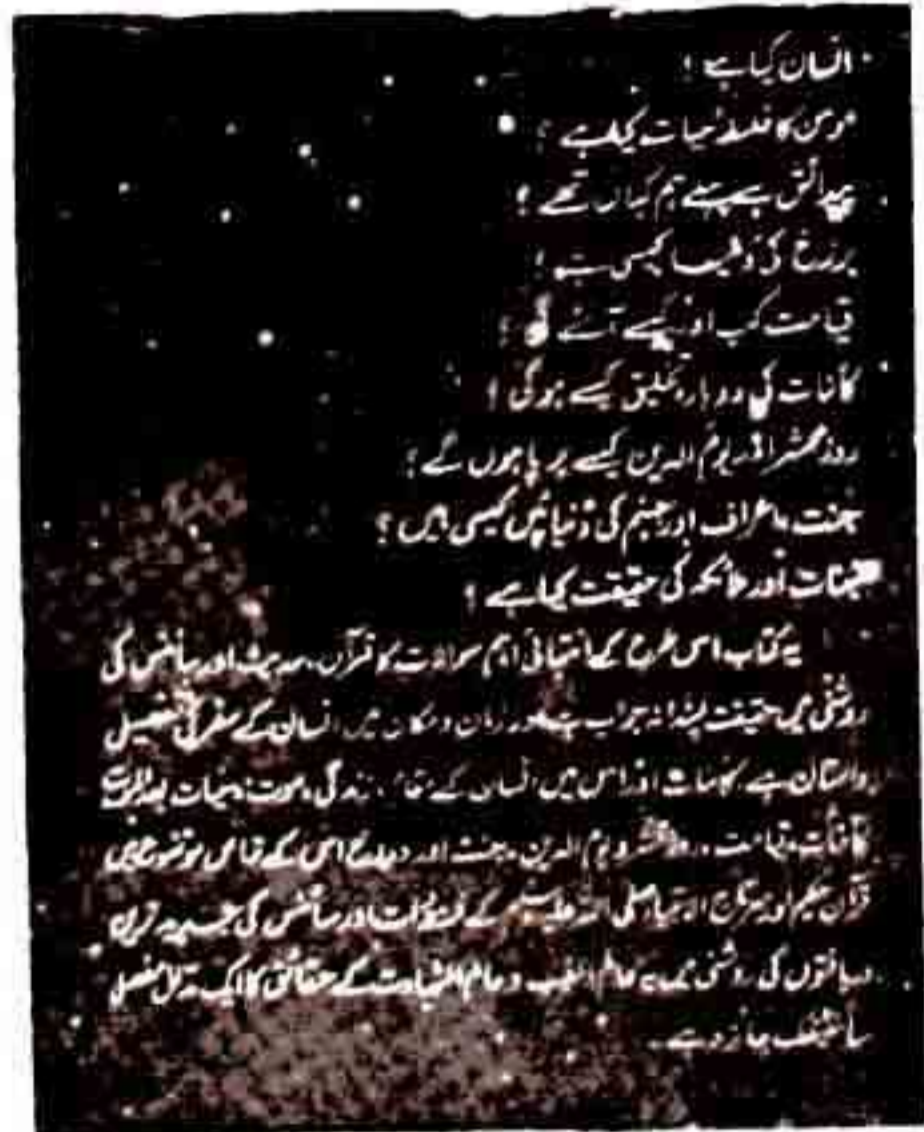 انسان کیا ہے؟
مومن کا فلسفۂ حیات کیا ہے؟
پیدائش سے پہلے ہم کہاں تھے؟
برزخ کی دُنیا کیسی ہے؟
قیامت کب اور کیسے آئے گی؟
کائنات کی دوبارہ تخلیق کیسے ہوگی؟
روزِ محشر اور یومُ الدین کیسے برپا ہوں گے؟
جنت، اعراف اور جہنم کی دُنیائیں کیسی ہیں؟
جنات اور ملائکہ کی حقیقت کیا ہے؟
یہ کتاب اس طرح کے انتہائی اہم سوالات کا قرآن، حدیث اور سائنس کی
روشنی میں حقیقت پسندانہ جواب ہے اور زمان و مکان میں انسان کے سفر کی تفصیلی
داستان ہے۔ کائنات اور اس میں انسان کے مقام، زندگی، موت، حیات بعد الموت
قیامت، روزِ محشر و یوم الدین، جنت اور دوزخ اس کے خاص موضوع ہیں
قرآن حکیم اور سرتاج الانبیاء صلی اللہ علیہ وسلم کے اور سائنس کی جدید ترین
دریافتوں کی روشنی میں یہ عالم الغیب و عالم الشہادت کے حقائق کا ایک مدلل مفصل
سائنٹیفک جائزہ ہے۔